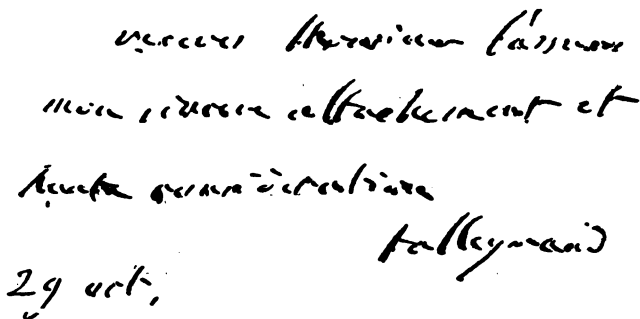 recevez Monsieur l'assurance
mon sincère attachement et
haute considération
talleyrand
29 oct.